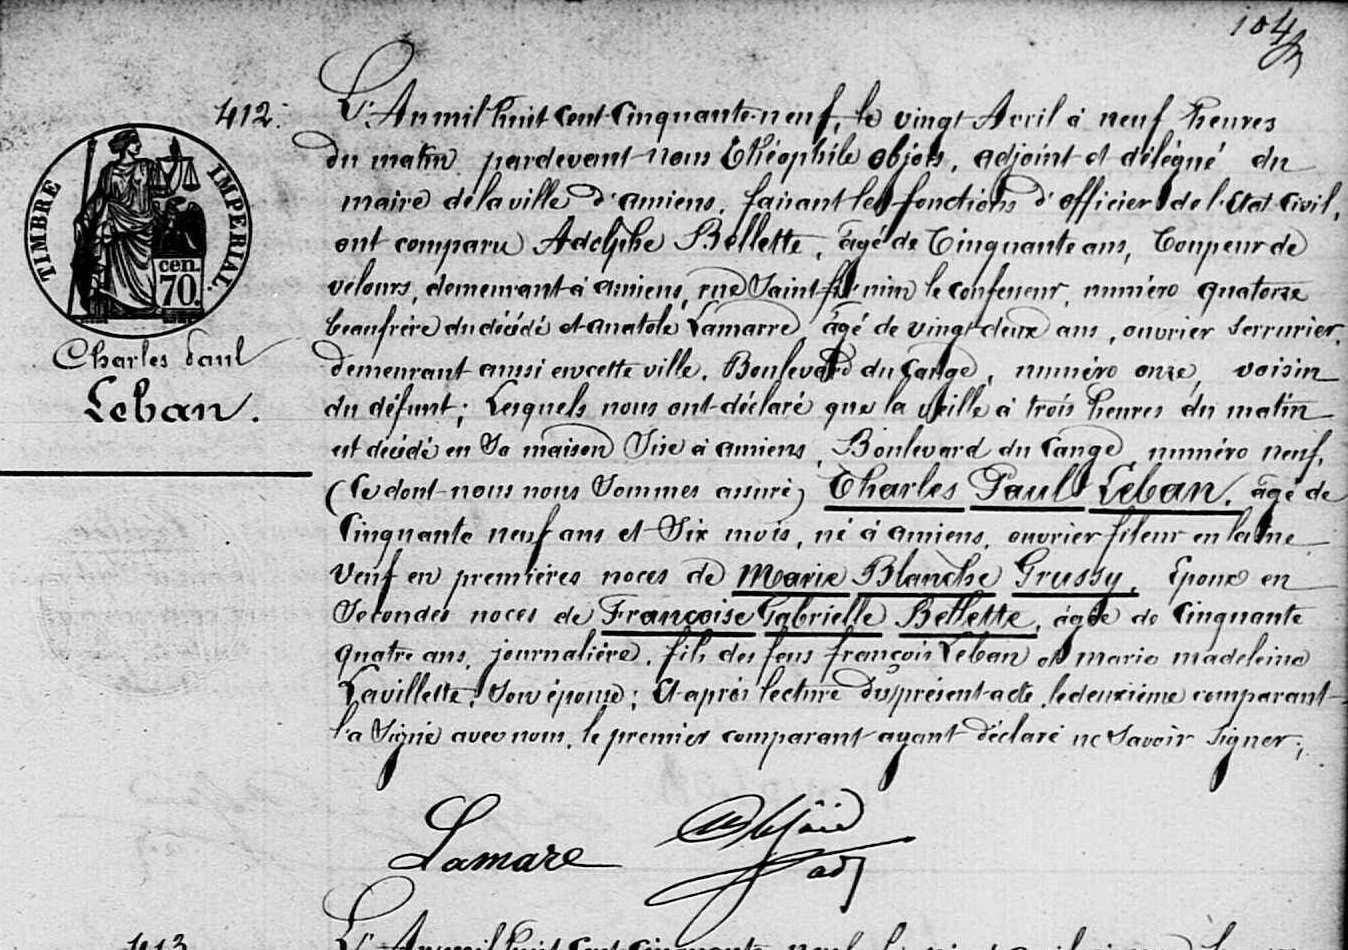 104
412.
TIMBRE IMPERIAL.
cen.
70.
Charles Paul
Leban.
L'An mil huit cent cinquante-neuf, le vingt Avril à neuf heures
du matin pardevant nous Théophile Objois, adjoint et délégué du
maire de la ville d'amiens, faisant les fonctions d'officier de l'Etat Civil,
ont comparu Adolphe Bellette, âgé de Cinquante ans, Coupeur de
velours, demeurant à amiens, rue Saint firmin le confesseur, numéro quatorze
beaufrère du décédé et anatole Lamarre âgé de vingt-deux ans, ouvrier serrurier,
demeurant aussi en cette ville, Boulevard du Cange, numéro onze, voisin
du défunt; Lesquels nous ont déclaré que la veille à trois heures du matin
est décédé en Sa maison Sise à amiens, Boulevard du Cange, numéro neuf,
(Ce dont nous nous Sommes assuré) Charles Paul Leban, âgé de
Cinquante neuf ans et Six mois, né à amiens, ouvrier fileur en laine
Veuf en premières noces de Marie Blanche Grussy, Epoux en
Secondes noces de Françoise Gabrielle Bellette, âgée de Cinquante
quatre ans, journalière, fils des feus françois Leban et marie madeleine
Lavillette, Son épouse; Et après lecture du présent acte, le deuxième comparant
l'a Signé avec nous, le premier comparant ayant déclaré ne Savoir Signer;
Lamare
adj
413
L'An mil huit cent cinquante neuf le